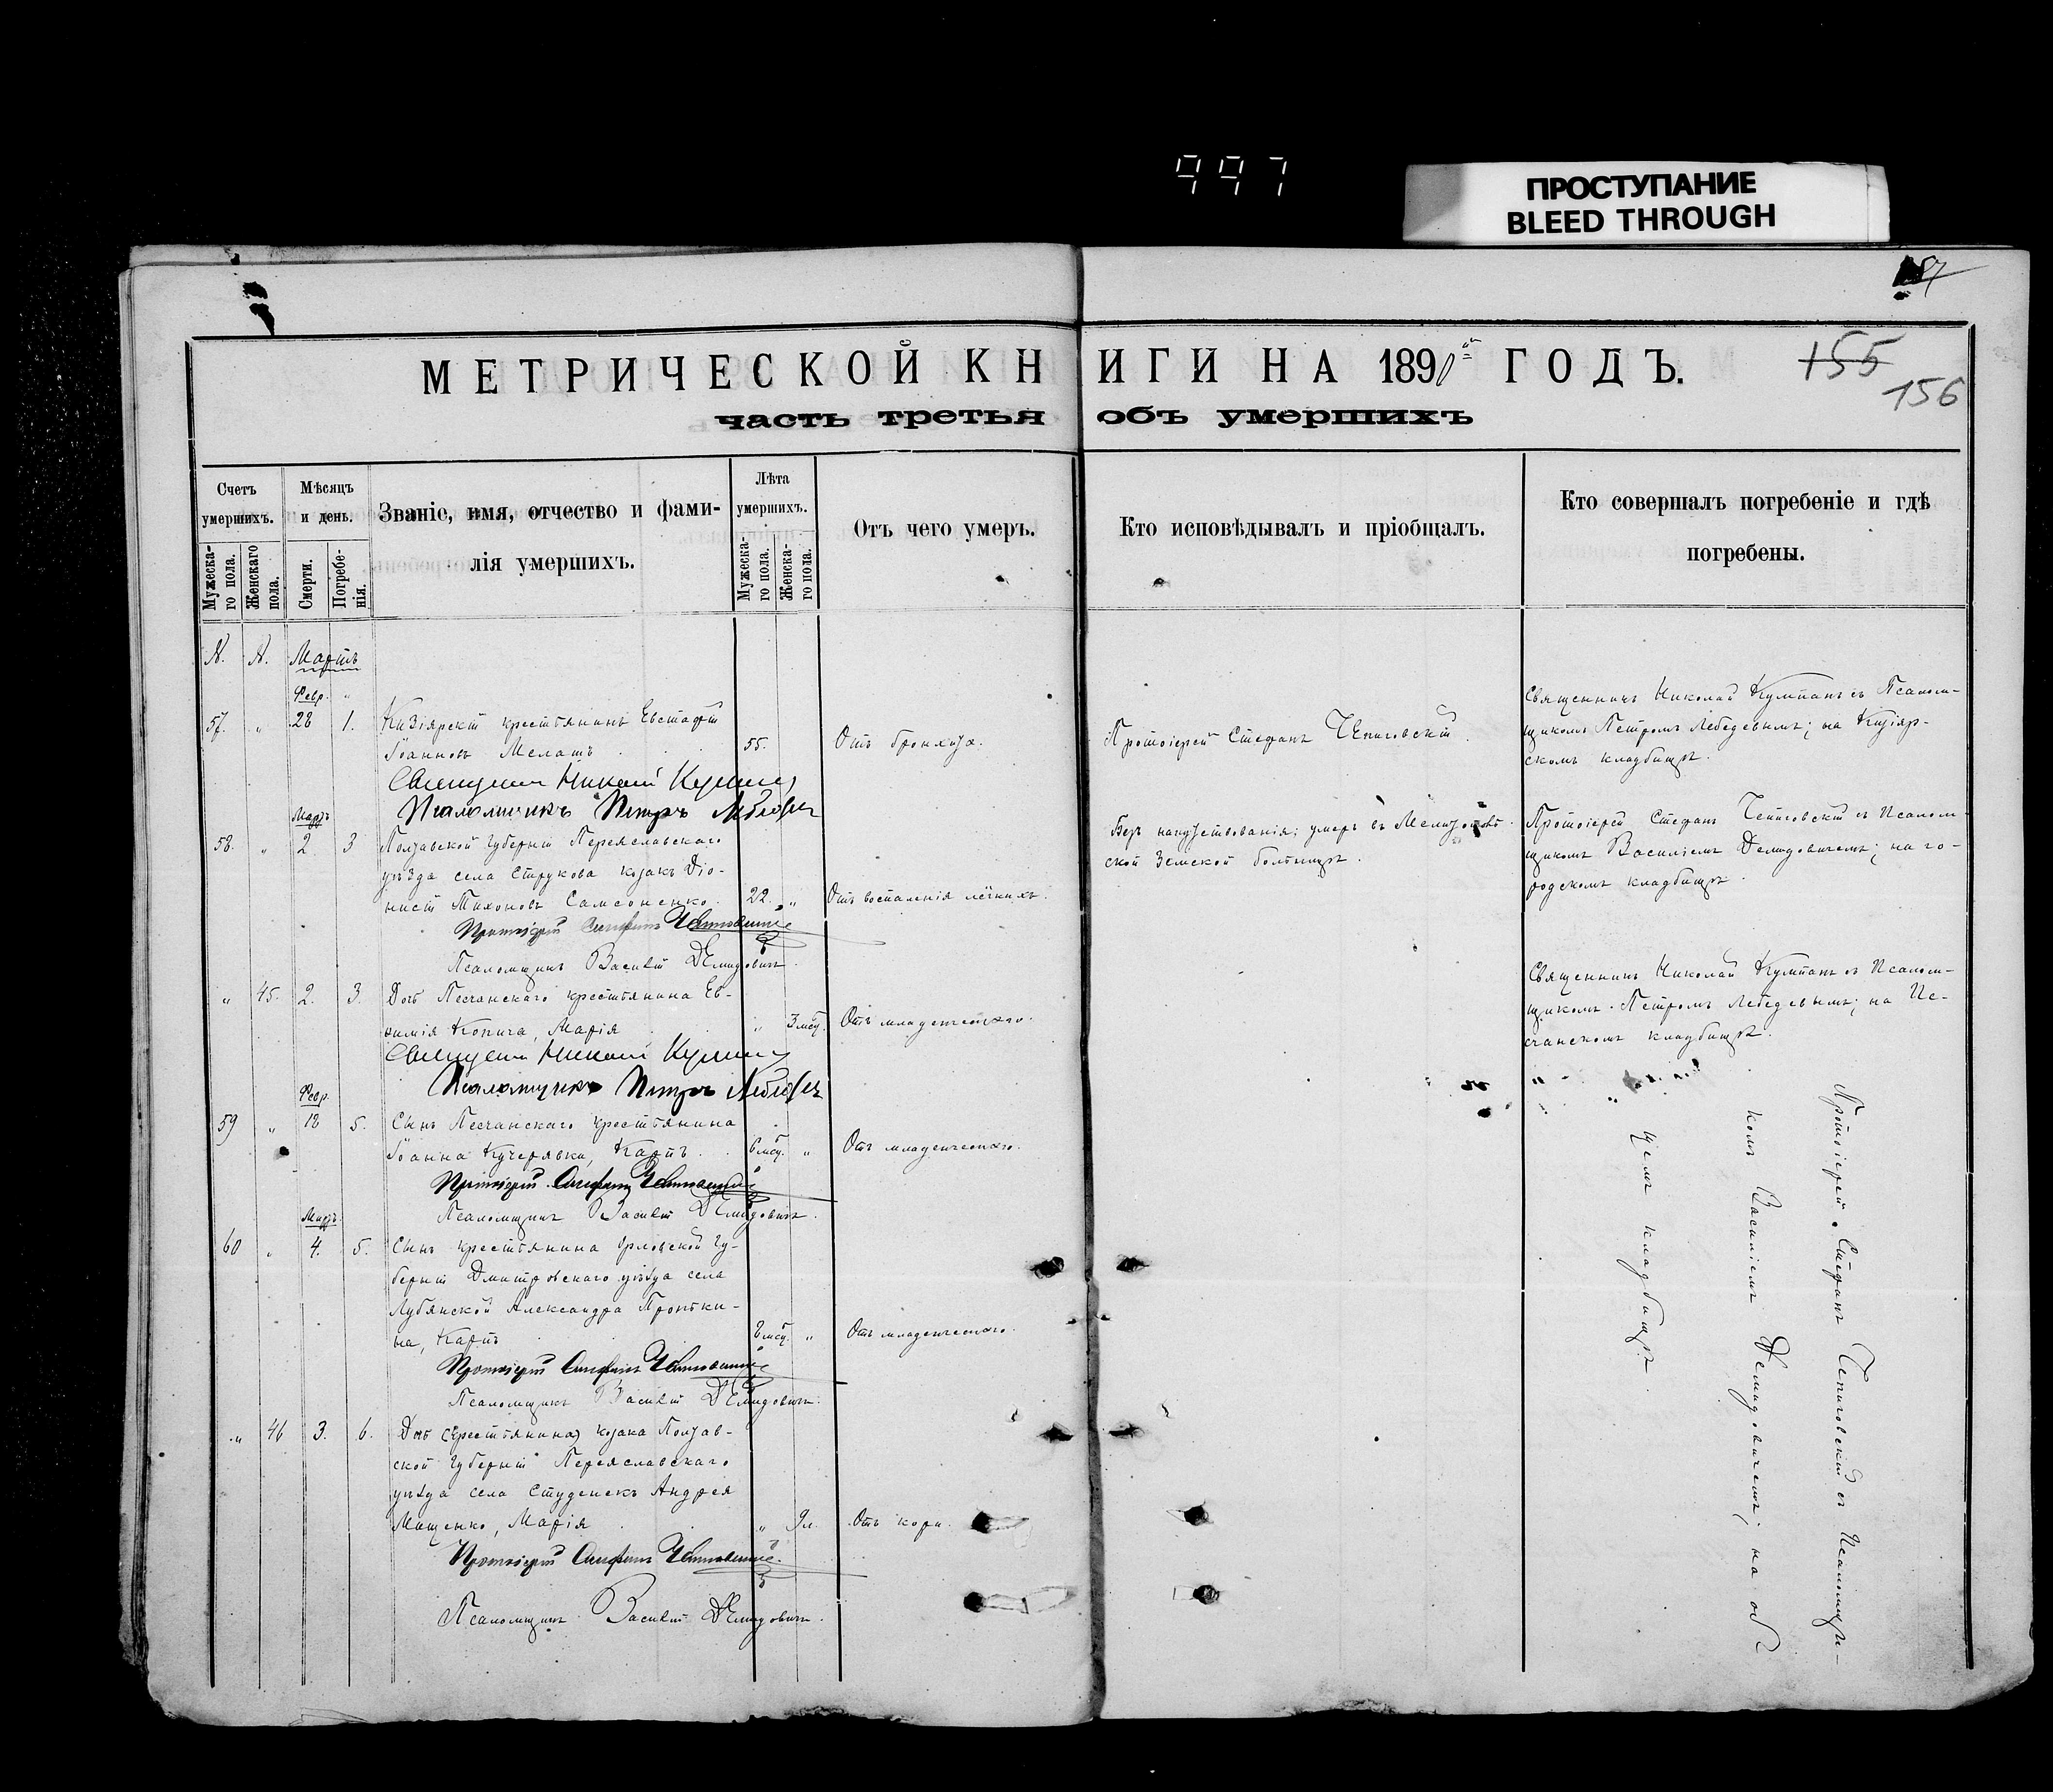 997
ПРОСТУПАНИЕ
BLEED THROUGH
МЕТРИЧЕСКОЙ КНИГИ НА 1890 ГОДЪ.
155
156
часть третья объ умершихъ
Счетъ умершихъ.
Мужескаго пола.
Женскаго пола.
Мѣсяцъ и день.
Смерти.
Погребенія.
Званіе, имя, отчество и фами-
лія умершихъ.
Лѣта умершихъ.
Мужескаго пола.
Женскаго пола.
Отъ чего умеръ.
Кто исповѣдывалъ и пріобщалъ.
Кто совершалъ погребеніе и гдѣ
погребены.
N. N. Мартъ
Февр. "
57. " 28 1. Кизіярскій крестьянинъ Евстафій
Іоанновъ Мелашъ 55. Отъ бронхиза.
Протоіерей Стефанъ Чепиговскій
Священникъ Николай Кумпанъ съ Псалом-
щикомъ Петромъ Лебедевымъ; на Кизіяр-
скомъ кладбищѣ.
Священникъ Николай Кумпанъ
Псаломщикъ Петръ Лебедевъ
Мартъ
58. " 2 3 Полтавской Губерніи Переяславскаго
уѣзда села Струкова козакъ Діо-
нисій Тихоновъ Самсоненко. 22. " Отъ воспаленія лёгкихъ.
Безъ напутствованія; умеръ въ Мелитополь-
ской Земской больницѣ.
Протоіерей Стефанъ Чепиговскій съ Псалом-
щикомъ Василіемъ Демидовичемъ; на го-
родскомъ кладбищѣ.
Протоіерей Стефанъ Чепиговскій
Псаломщикъ Василій Демидовичъ.
" 45. 2. 3. Дочь Песчанскаго крестьянина Ев-
фимія Копича, Марія " 3 мсц. Отъ младенческаго.
Священникъ Николай Кумпанъ съ Псалом-
щикомъ Петромъ Лебедевымъ; на Пе-
счанскомъ кладбищѣ.
Священникъ Николай Кумпанъ
Псаломщикъ Петръ Лебедевъ
Февр.
59 " 18 5. Сынъ Песчанскаго крестьянина
Іоанна Кучерявка, Карпъ. 6 мсц. " Отъ младенческаго.
Протоіерей Стефанъ Чепиговскій
Псаломщикъ Василій Демидовичъ.
Мартъ
60 " 4. 5. Сынъ крестьянина Орловской Гу-
берніи Дмитровскаго уѣзда села
Лубянской Александра Проньки-
на, Карпъ 8 мсц. " Отъ младенческаго.
Протоіерей Стефанъ Чепиговскій
Псаломщикъ Василій Демидовичъ.
" 46 3. 6. Дочь (крестьянина) козака Полтав-
ской Губерніи Переяславскаго
уѣзда села Студенекъ Андрея
Мащенко, Марія " 9 л. Отъ кори.
Протоіерей Стефанъ Чепиговскій
Псаломщикъ Василій Демидовичъ.
Протоіерей Стефанъ Чепиговскій съ Псаломщи-
комъ Василіемъ Демидовичемъ; на об-
щемъ кладбищѣ.